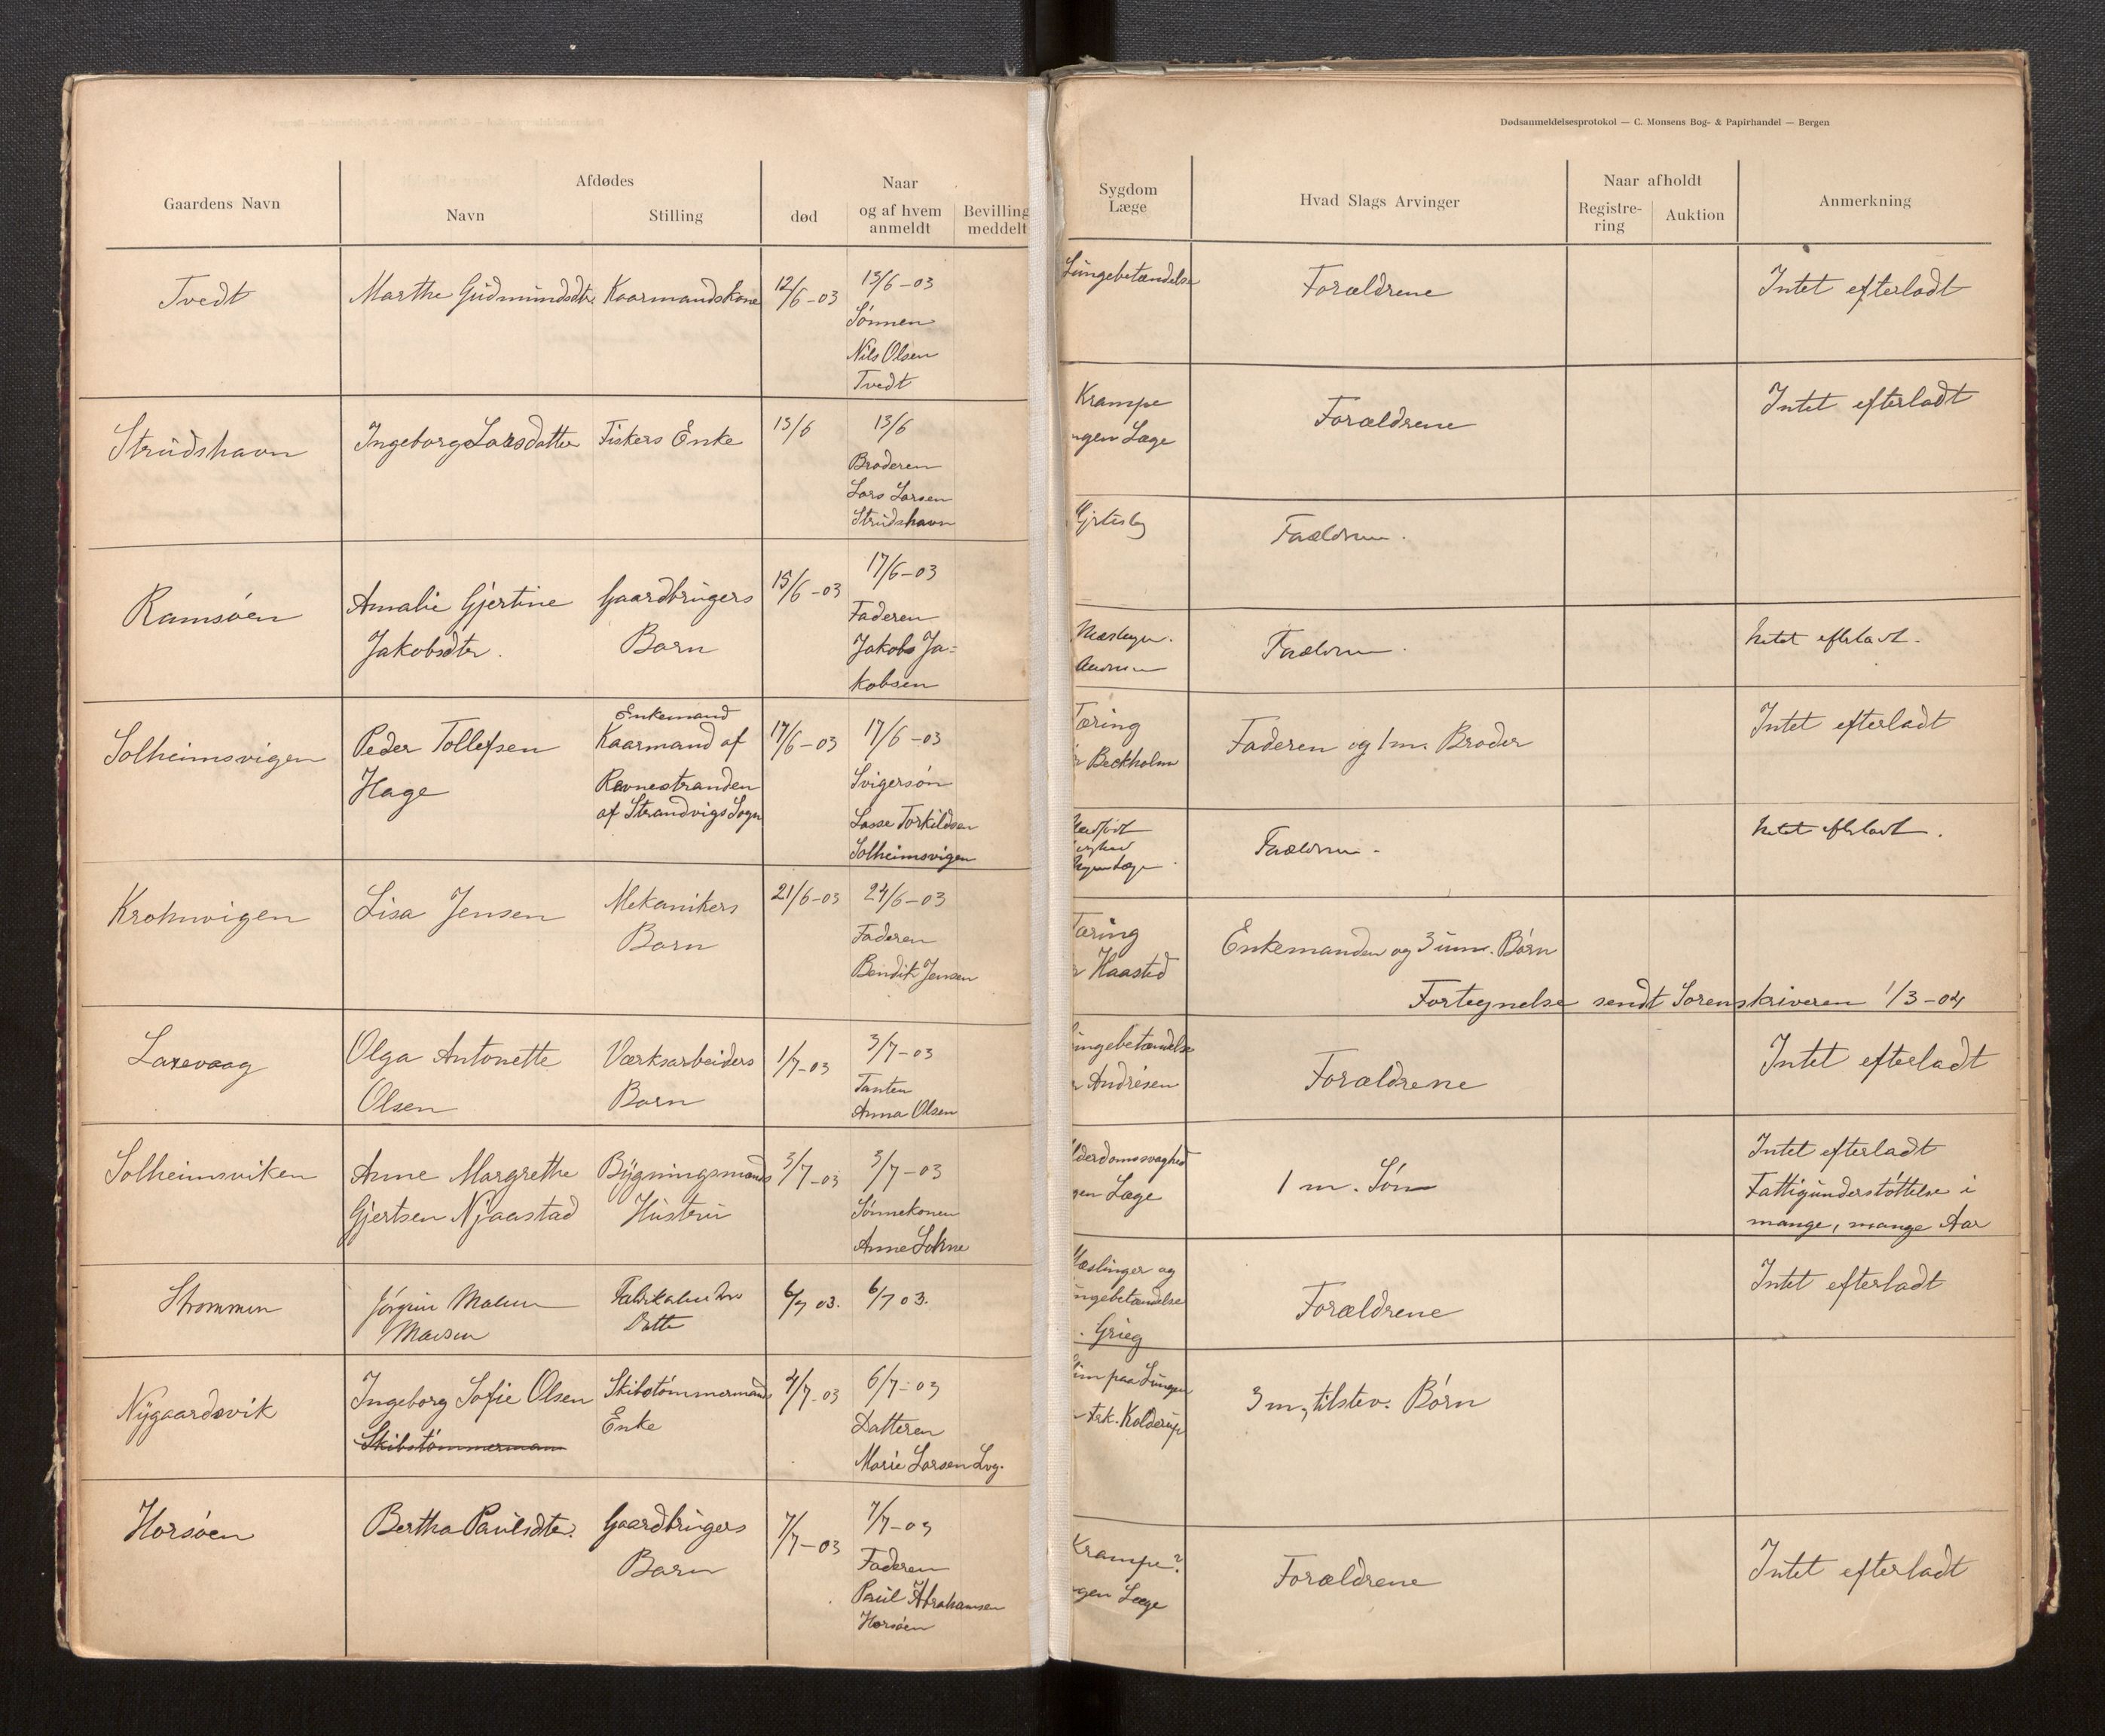 Gaardens Navn
Afdødes
Navn
Stilling
død
Naar
og af hvem
anmeldt
Bevilling
meddelt
Tvedt
Marthe Gudmundsdtr
Kaarmandskone
12/6-03
13/6-03
Sønnen
Nils Olsen
Tvedt
Strudshavn
Ingeborg Larsdatter
Fiskers Enke
13/6
13/6
Broderen
Lars Larsen
Strudshavn
Ramsøen
Amalie Gjertine
Jakobsdtr.
Gaardbrugers
Barn
15/6-03
17/6-03
Faderen
Jakob Ja=
kobsen
Solheimsvigen
Peder Tollefsen
Hage
Enkemand
Kaarmand af
Revnestranden
af Strandvigs Sogn
17/6-03
17/6-03
Svigersøn
Lasse Torkildsen
Solheimsvigen
Krohnvigen
Lisa Jensen
Mekanikers
Barn
21/6-03
24/6-03
Faderen
Bendik Jensen
Laxevaag
Olga Antonette
Olsen
Værksarbeiders
Barn
1/7-03
3/7-03
Tanten
Anna Olsen
Solheimsviken
Anne Margrethe
Gjertsen Njaastad
Bygningsmands
Hustru
3/7-03
3/7-03
Sønnekonen
Anne Lohne
Strømmen
Jørgine
Madsen
Datter
6/7 03.
6/7 03.
Nygaardsvik
Ingeborg Sofie Olsen
Skibstømmermann
Skibstømmermands
Enke
4/7-03
6/7-03
Datteren
Marie Larsen Lvg.
Horsøen
Bertha Paulsdtr.
Gaardbrugers
Barn
7/7-03
7/7-03
Faderen
Paul Abrahamsen
Horsøen
Dødsanmeldelsesprotokol — C. Monsens Bog- & Papirhandel — Bergen
Sygdom
Læge
Hvad Slags Arvinger
Naar afholdt
Registre-
ring
Auktion
Anmerkning
Lungebetændelse
Forældrene
Intet efterladt
Krampe
ngen Læge
Forældrene
Intet efterladt
Forældrene.
Forældrene.
Intet efterladt.
Tæring
Beckholm
Faderen og 1 m. Broder
Intet efterladt
Forældrene.
Intet efterladt.
Tæring
Haasted
Enkemanden og 3 um. Børn
Fortegnelse sendt Sorenskriveren 1/3-04
ungebetændelse
Andrésen
Forældrene
Intet efterladt
lderdomssvaghed
gen Læge
1 m. Søn
Intet efterladt
Fattigunderstøttelse i
mange, mange Aar
Mæslinger og
ngebetændelse
. Grieg
Forældrene
Intet efterladt
paa Lungen
Kolderup
3 m, tilstev. Børn
Krampe?
gen Læge
Forældrene
Intet efterladt